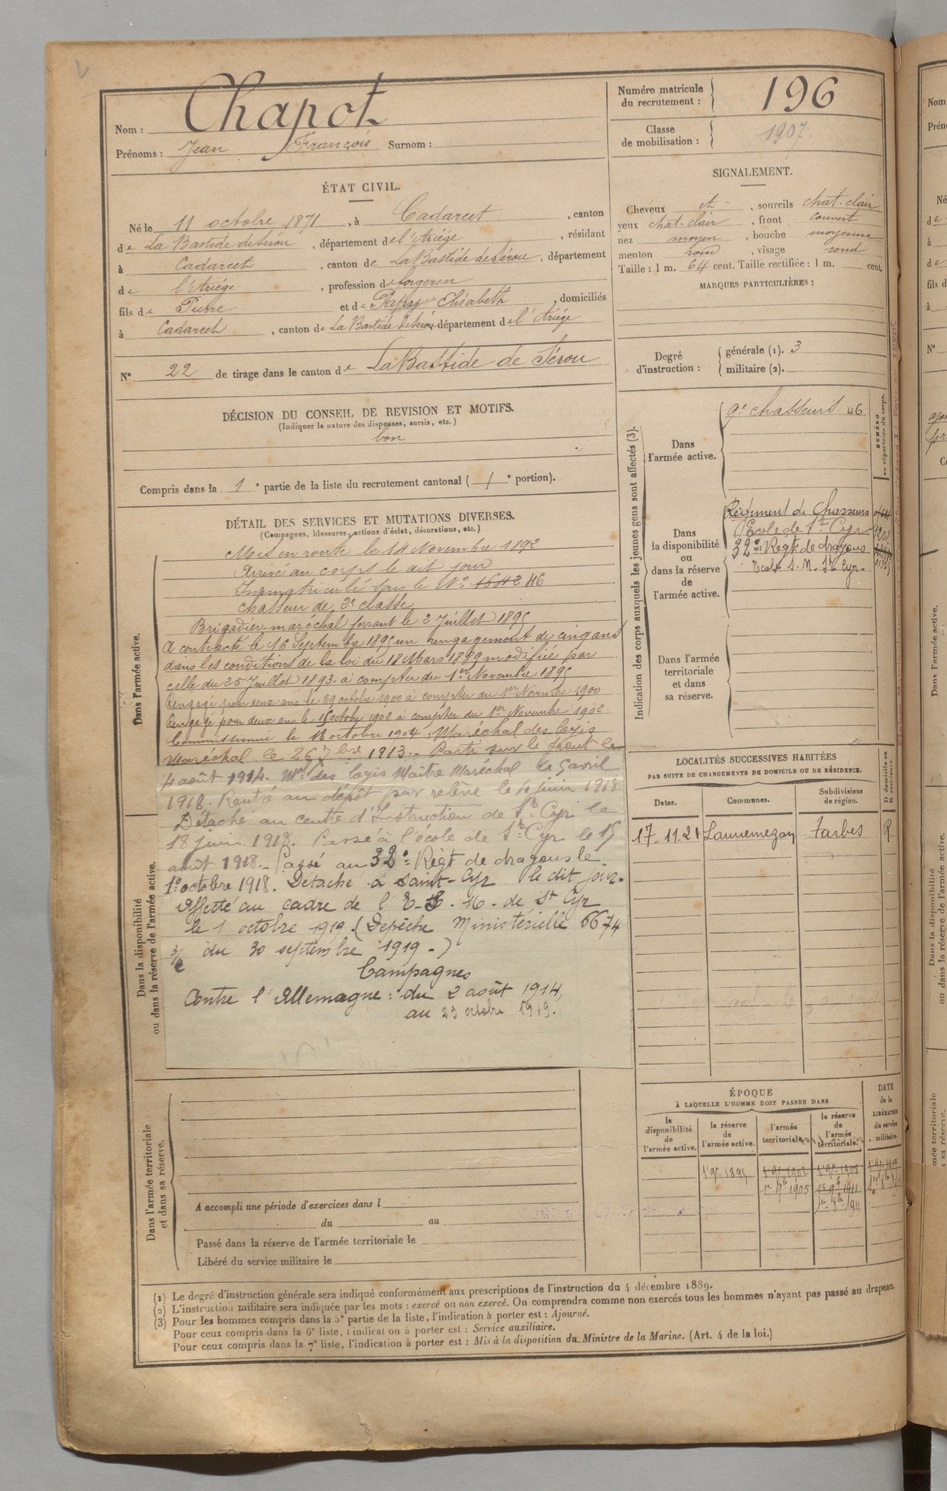 Nom : Chapot
Prénoms : Jean François Surnom :
Numéro matricule
du recrutement : 196
Classe
de mobilisation : 1907.
ÉTAT CIVIL.
Né le 11 octobre 1871, à Cadarcet, canton
de La Bastide de Sérou, département de l'Ariége, résidant
à Cadarcet, canton de La Bastide de Sérou, département
de l'Ariége, profession de forgeron
fils de Pierre et de Elisabeth, domiciliés
à Cadarcet, canton de La Bastide de Sérou département de l'Ariége
N° 22 de tirage dans le canton de La Bastide de Sérou
SIGNALEMENT.
Cheveux et, sourcils chat. clair
yeux chat. clair, front couvert
nez moyen, bouche moyenne
menton rond, visage rond
Taille : 1 m. 64 cent. Taille rectifiée : 1 m. cent.
MARQUES PARTICULIÈRES :
Degré
d'instruction :
générale (1). 3
militaire (2).
DÉCISION DU CONSEIL DE REVISION ET MOTIFS.
(Indiquer la nature des dispenses, sursis, etc.)
bon
Compris dans la 1e partie de la liste du recrutement cantonal (1e portion).
DÉTAIL DES SERVICES ET MUTATIONS DIVERSES.
(Campagnes, blessures, actions d'éclat, décorations, etc.)
Dans l'armée active.
Mis en route le 14 Novembre 1892
Arrivé au corps le dit jour
Immatriculé sous le N° 46
chasseur de 2e classe
Brigadier-maréchal ferrant le 2 Juillet 1895
A contracté le 16 Septembre 1895 un rengagement de cinq ans
dans les conditions de la loi du 18 Mars 1889 modifiée par
celle du 25 Juillet 1893 à compter du 1er Novembre 1895
Rengagé pour deux ans le octobre 1900 à compter du 1er Novembre 1900
Rengagé pour deux ans le octobre 1902 à compter du 1er Novembre 1902
Commissionné le 18 octobre 1904. Maréchal des logis
Maréchal le 26 7bre 1913. Parti sur le front le
4 août 1914. Mal des logis Maître Maréchal le 5 avril
1918. Rentré au dépôt par relève le 4 juin 1918
Détaché au centre d'Instruction de St Cyr le
18 juin 1918. Passé à l'école de St Cyr le 15
août 1918. Passé au 32e Régt de dragons le
1er octobre 1918. Détaché à Saint-Cyr le dit jour.
Affecté au cadre de l'E. S. M. de St Cyr
le 1 octobre 1919 (Dépêche Ministérielle 6674
du 30 septembre 1919.)
Campagnes
Contre l'Allemagne : du 2 août 1914,
au 23 octobre 1919.
Dans la disponibilité
ou dans la réserve de l'armée active.
Indication des corps auxquels les jeunes gens sont affectés (3).
NUMÉRO
au répertoire du corps.
Dans
l'armée active.
9e chasseurs 46
Dans
la disponibilité
ou
dans la réserve
de
l'armée active.
Régiment de Chasseurs
Ecole de St Cyr
32e Régt de dragons
Ecole S. M. St Cyr.
Dans l'armée
territoriale
et dans
sa réserve.
LOCALITÉS SUCCESSIVES HABITÉES
PAR SUITE DE CHANGEMENTS DE DOMICILE OU DE RÉSIDENCE.
Dates. Communes. Subdivisions
de région.
17.11.21 Lannemezan Tarbes R
ÉPOQUE
À LAQUELLE L'HOMME DOIT PASSER DANS
la
disponibilité
de
l'armée active.
la réserve
de
l'armée active.
l'armée
territoriale.
la réserve
de
l'armée
territoriale.
DATE
de la
LIBÉRATION
du service
militaire.
Dans l'armée territoriale
et dans sa réserve.
A accompli une période d'exercices dans l
du au
Passé dans la réserve de l'armée territoriale le
Libéré du service militaire le
(1) Le degré d'instruction générale sera indiqué conformément aux prescriptions de l'instruction du 4 décembre 1889.
(2) L'instruction militaire sera indiquée par les mots : exercé ou non exercé. On comprendra comme non exercés tous les hommes n'ayant pas passé au drapeau.
(3) Pour les hommes compris dans la 5e partie de la liste, l'indication à porter est : Ajourné.
Pour ceux compris dans la 6e liste, l'indication à porter est : Service auxiliaire.
Pour ceux compris dans la 7e liste, l'indication à porter est : Mis à la disposition du Ministre de la Marine. (Art. 4 de la loi.)